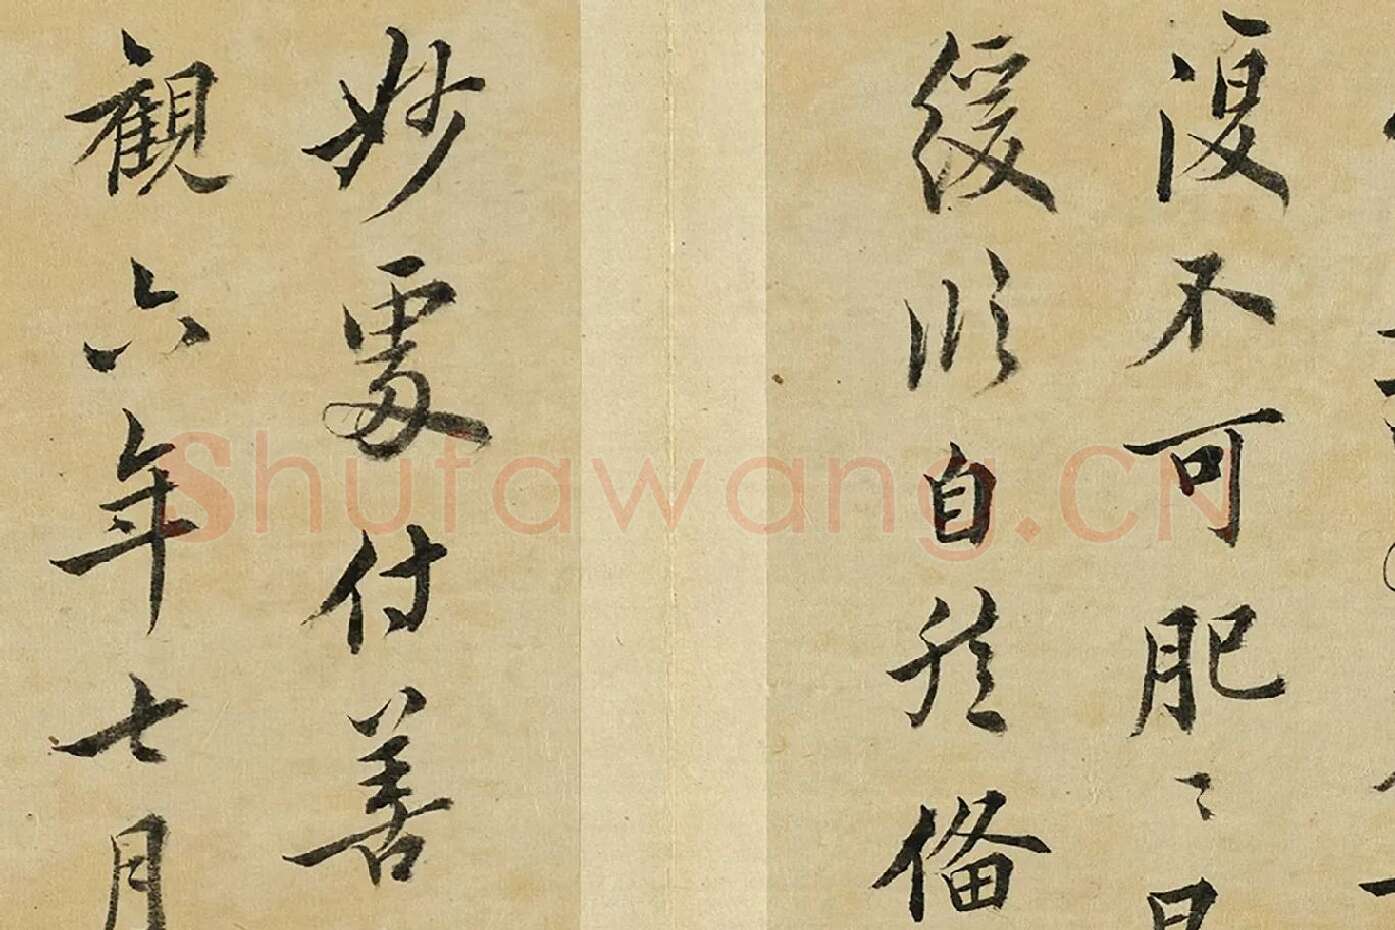 復不可肥〻
緩臨自然備
妙處付善
觀六年七月
Shufawang.CN